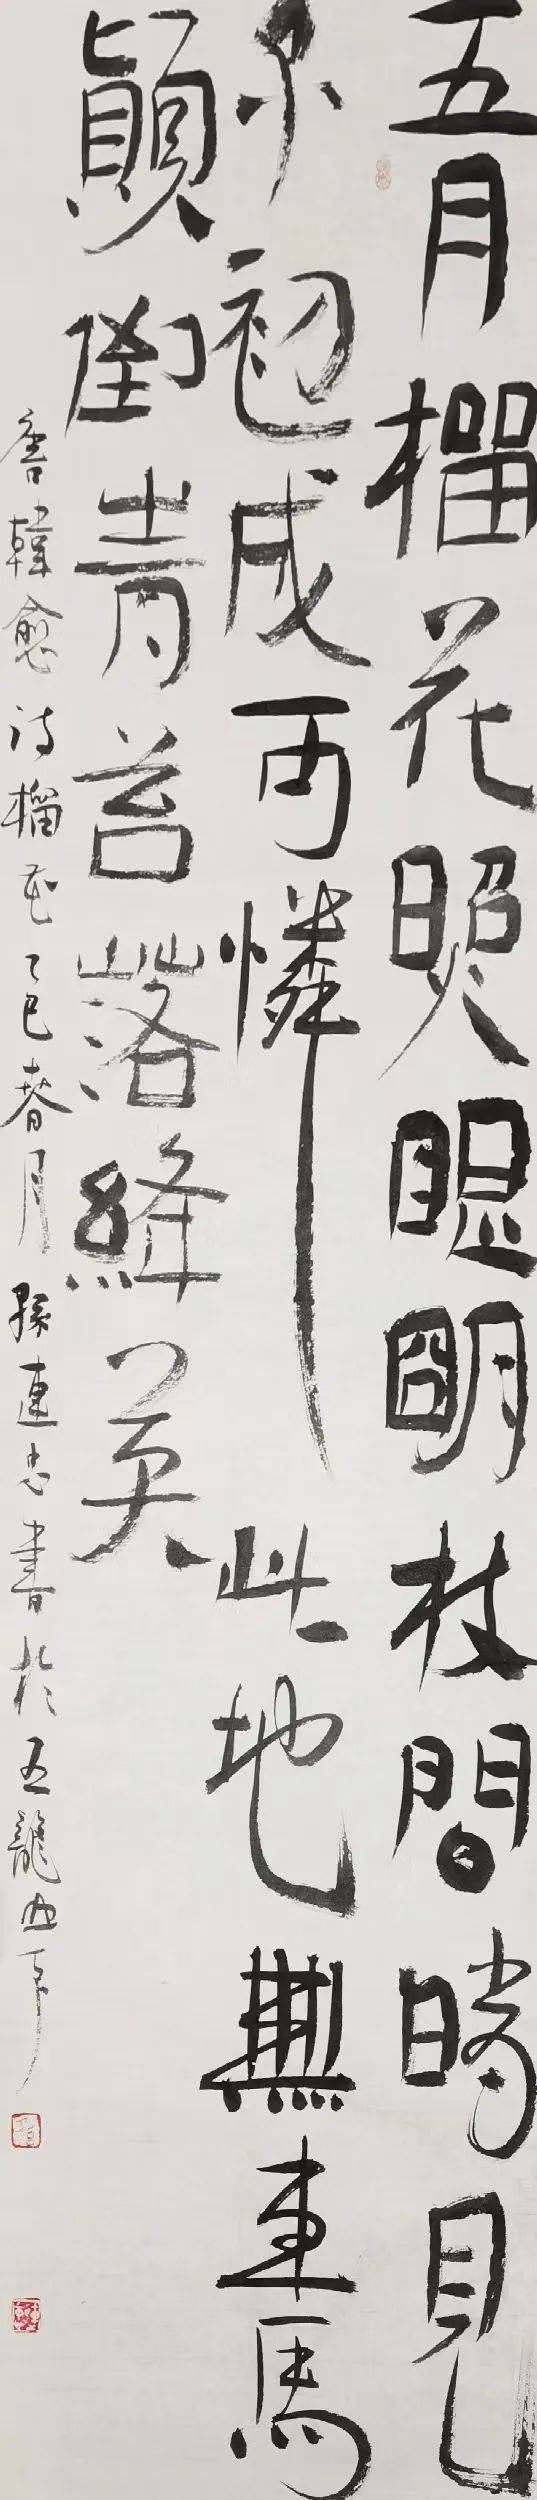 五月榴花照眼明枝間時見
子初成可憐此地無車馬
顛倒青苔落絳英
唐韓愈詩榴花乙巳春月孫連忠書於五龍山下